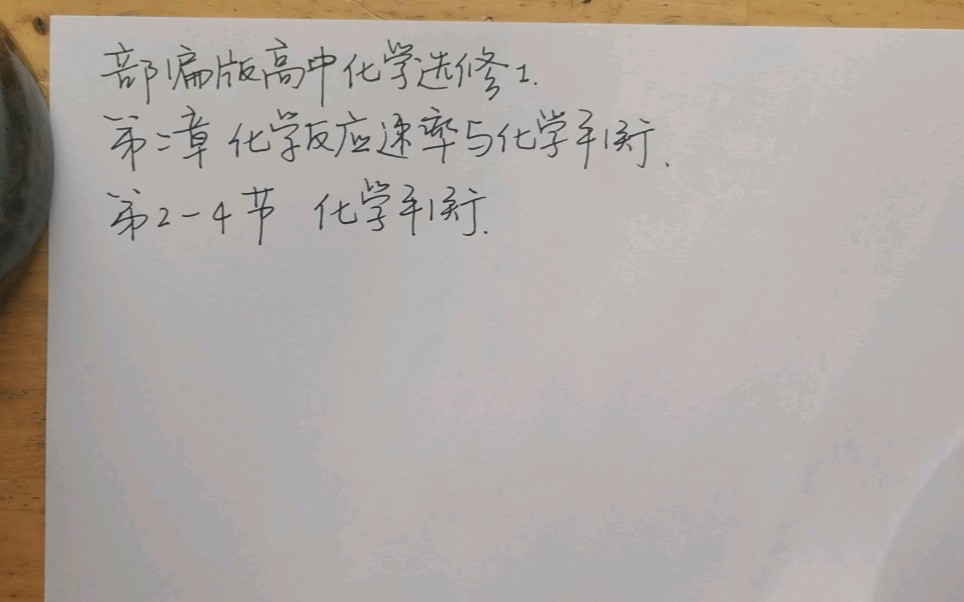 部编版高中化学选修1.
第二章 化学反应速率与化学平衡.
第2-4节 化学平衡.